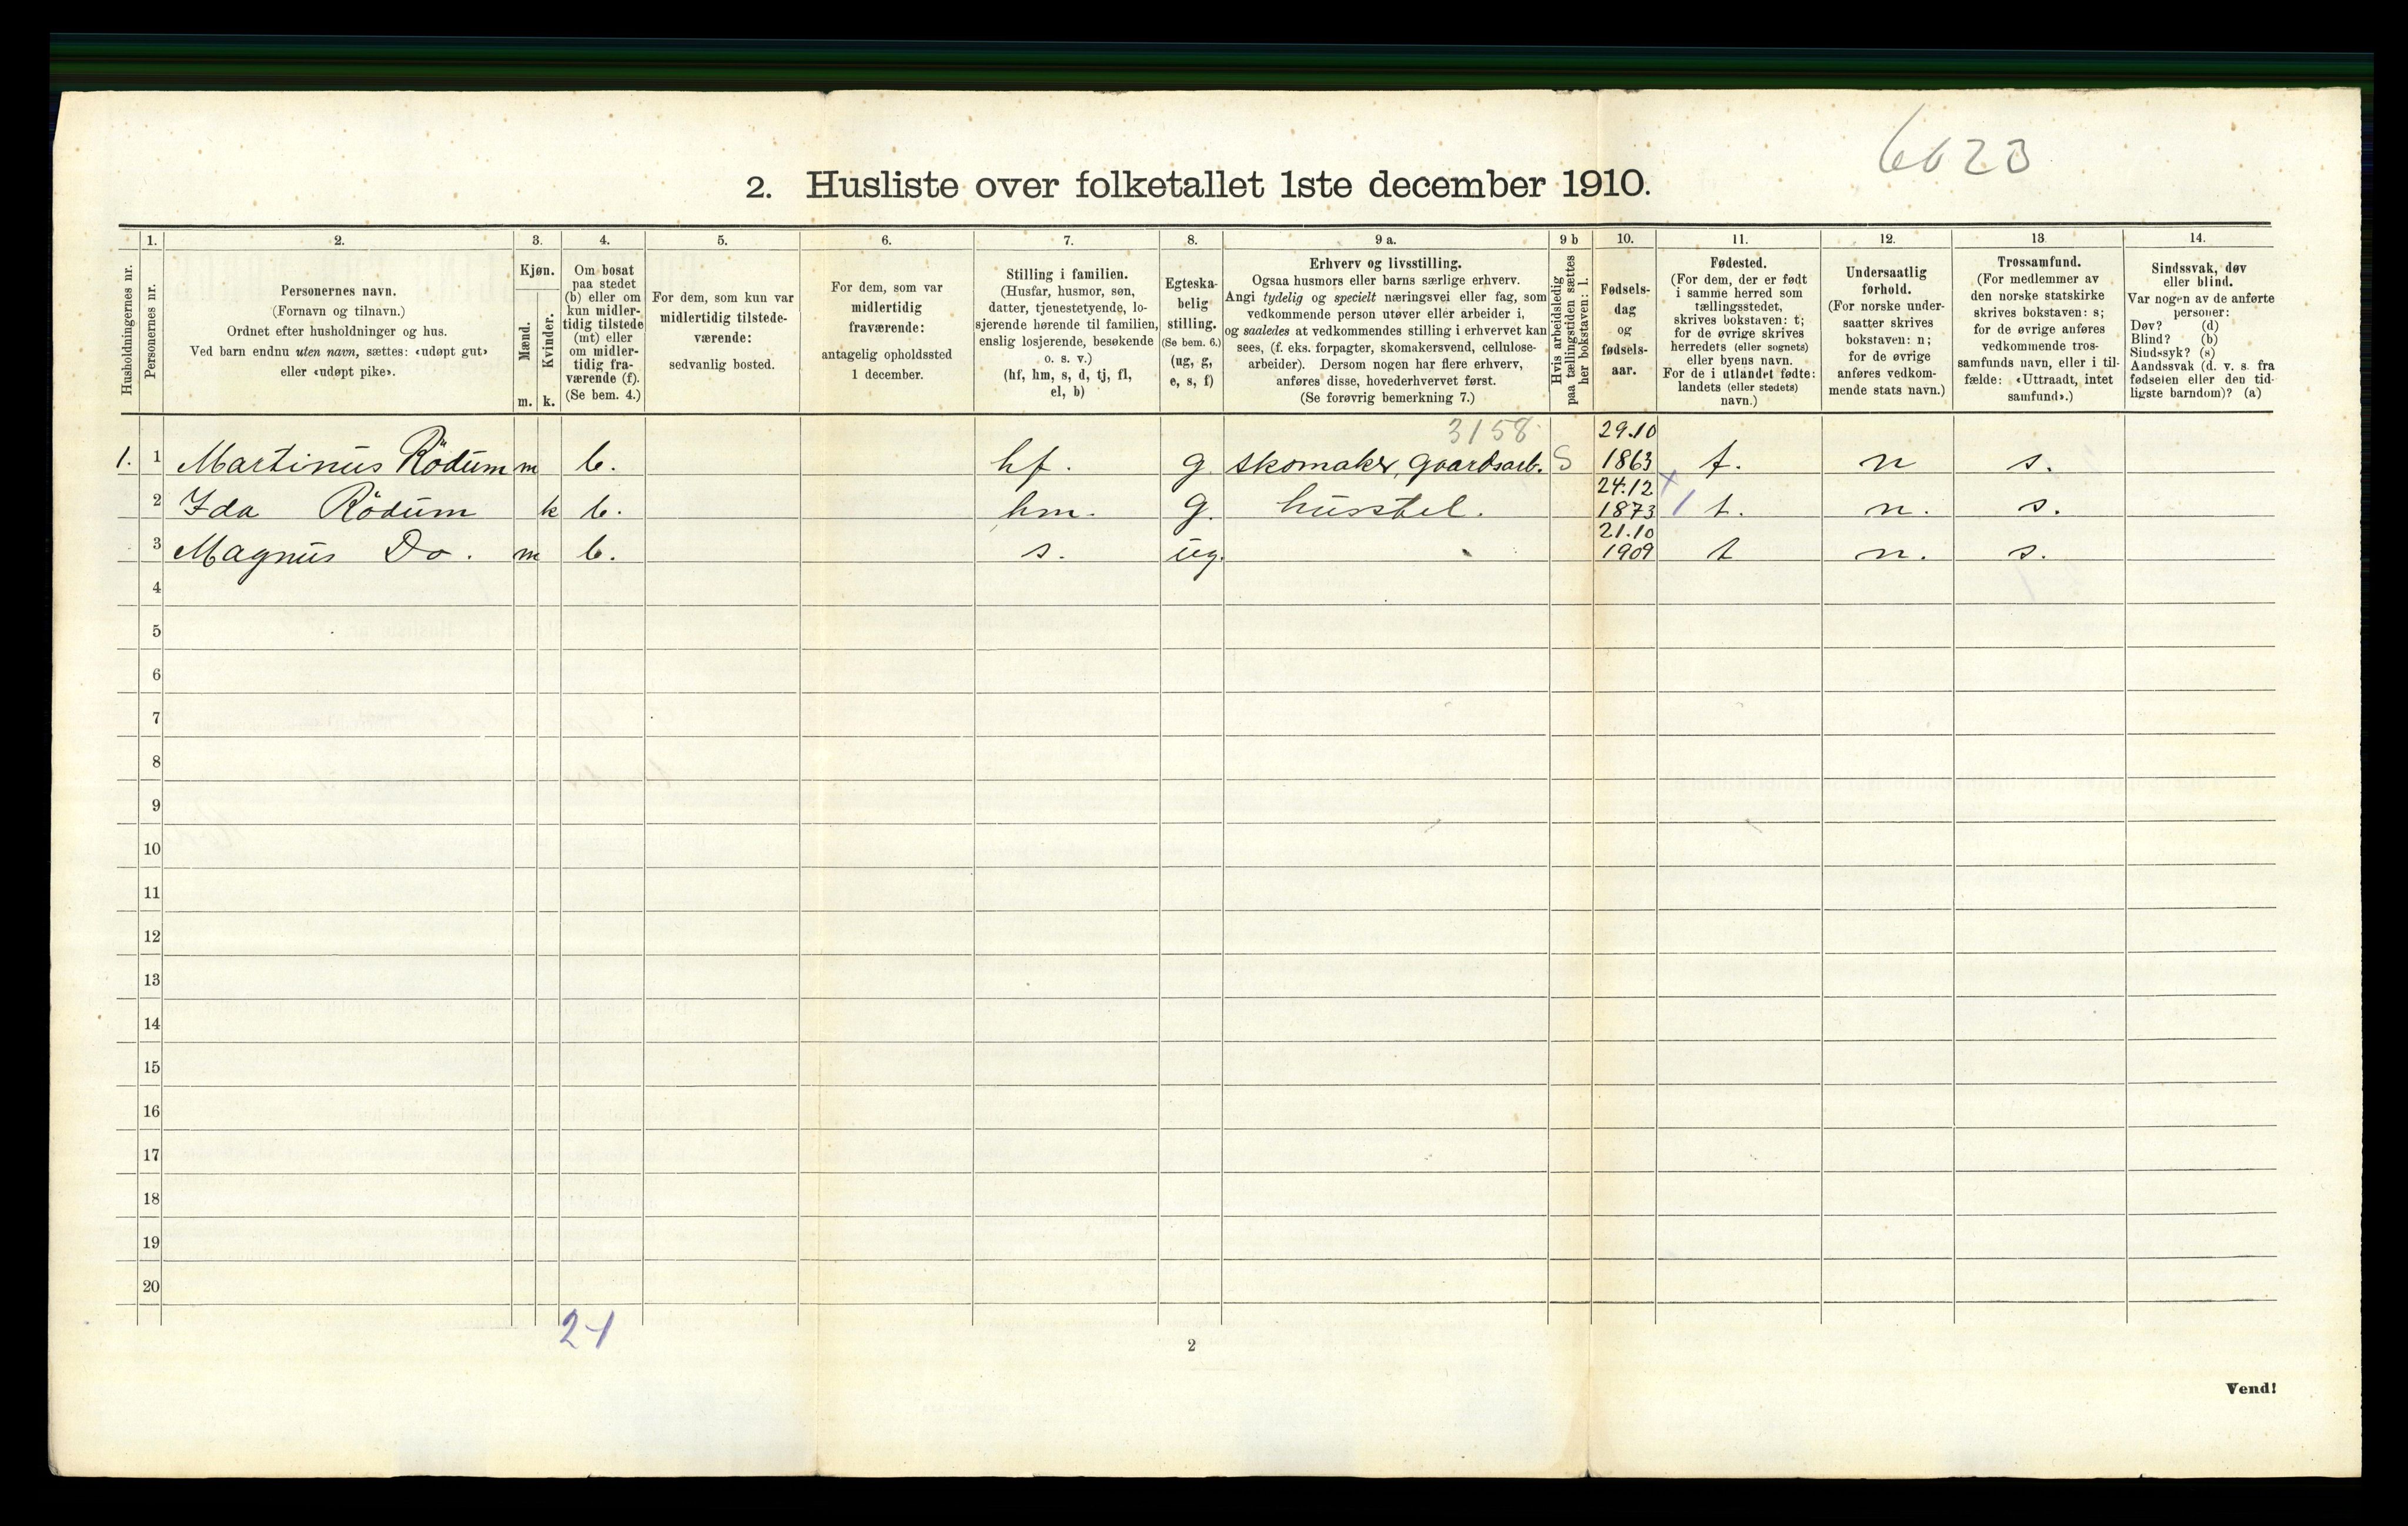 6023
2. Husliste over folketallet 1ste december 1910.
Husholdningernes nr.
1.
Personernes nr.
2.
Personernes navn.
(Fornavn og tilnavn.)
Ordnet efter husholdninger og hus.
Ved barn endnu uten navn, sættes: «udøpt gut»
eller «udøpt pike».
3.
Kjøn.
Mænd.
m.
Kvinder.
k.
4.
Om bosat
paa stedet
(b) eller om
kun midler-
tidig tilstede
(mt) eller
om midler-
tidig fra-
værende (f).
(Se bem. 4.)
5.
For dem, som kun var
midlertidig tilstede-
værende:
sedvanlig bosted.
6.
For dem, som var
midlertidig
fraværende:
antagelig opholdssted
1 december.
7.
Stilling i familien.
(Husfar, husmor, søn,
datter, tjenestetyende, lo-
sjerende hørende til familien,
enslig losjerende, besøkende
o. s. v.)
(hf, hm, s, d, tj, fl,
el, b)
8.
Egteska-
belig
stilling.
(Se bem. 6.)
(ug, g,
e, s, f)
9 a.
Erhverv og livsstilling.
Ogsaa husmors eller barns særlige erhverv.
Angi tydelig og specielt næringsvei eller fag, som
vedkommende person utøver eller arbeider i,
og saaledes at vedkommendes stilling i erhvervet kan
sees, (f. eks. forpagter, skomakersvend, cellulose-
arbeider). Dersom nogen har flere erhverv,
anføres disse, hovederhvervet først.
(Se forøvrig bemerkning 7.)
9 b
Hvis arbeidsledig
paa tællingstiden sættes
her bokstaven: l.
10.
Fødsels-
dag
og
fødsels-
aar.
11.
Fødested.
(For dem, der er født
i samme herred som
tællingsstedet,
skrives bokstaven: t;
for de øvrige skrives
herredets (eller sognets)
eller byens navn.
For de i utlandet fødte:
landets (eller stedets)
navn.)
12.
Undersaatlig
forhold.
(For norske under-
saatter skrives
bokstaven: n;
for de øvrige
anføres vedkom-
mende stats navn.)
13
Trossamfund.
(For medlemmer av
den norske statskirke
skrives bokstaven: s;
for de øvrige anføres
vedkommende tros-
samfunds navn, eller i til-
fælde: «Uttraadt, intet
samfund».)
14.
Sindssvak, døv
eller blind.
Var nogen av de anførte
personer:
Døv? (d)
Blind? (b)
Sindssyk? (s)
Aandssvak (d. v. s. fra
fødselen eller den tid-
ligste barndom)? (a)
3158 29.10
1. 1 Martinus Rödum m b. hf. g skomaker, gaardsarb. S 1863 t. n s.
24.12
2 Ida Rödum k b. hm. g. husstel. 1873 t. n. s.
21.10
3 Magnus Do. m b. s. ug. 1909 t n. s.
4
5
6
7
8
9
10
11
12
13
14
15
16
17
18
19
20
2-1
2
Vend!